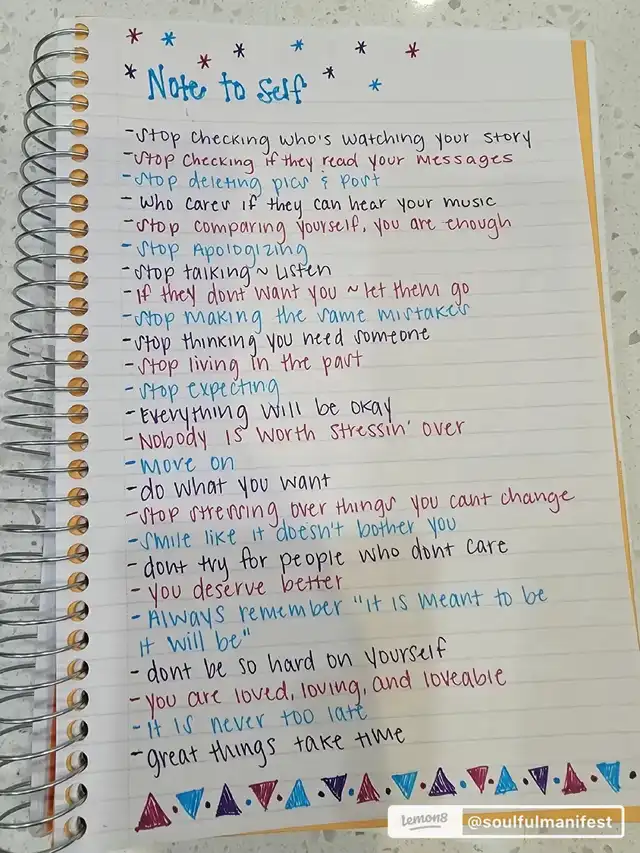 Note to self
-Stop checking who's watching your story
-Stop checking if they read your messages
-Stop deleting pics & post
- who cares if they can hear your music
-Stop comparing yourself, you are enough
-Stop Apologizing
-Stop talking ~ Listen
-If they dont want you ~ let them go
-Stop making the same mistakes
-Stop thinking you need someone
-Stop living in the past
-Stop expecting
-Everything will be okay
-Nobody is worth stressin' over
-move on
-do what you want
-Stop stressing over things you cant change
-Smile like it doesn't bother you
- dont try for people who dont care
- you deserve better
- Always remember "it is meant to be
it will be"
- dont be so hard on yourself
-you are loved, loving, and loveable
-it is never too late
-great things take time
lemon8 @soulfulmanifest